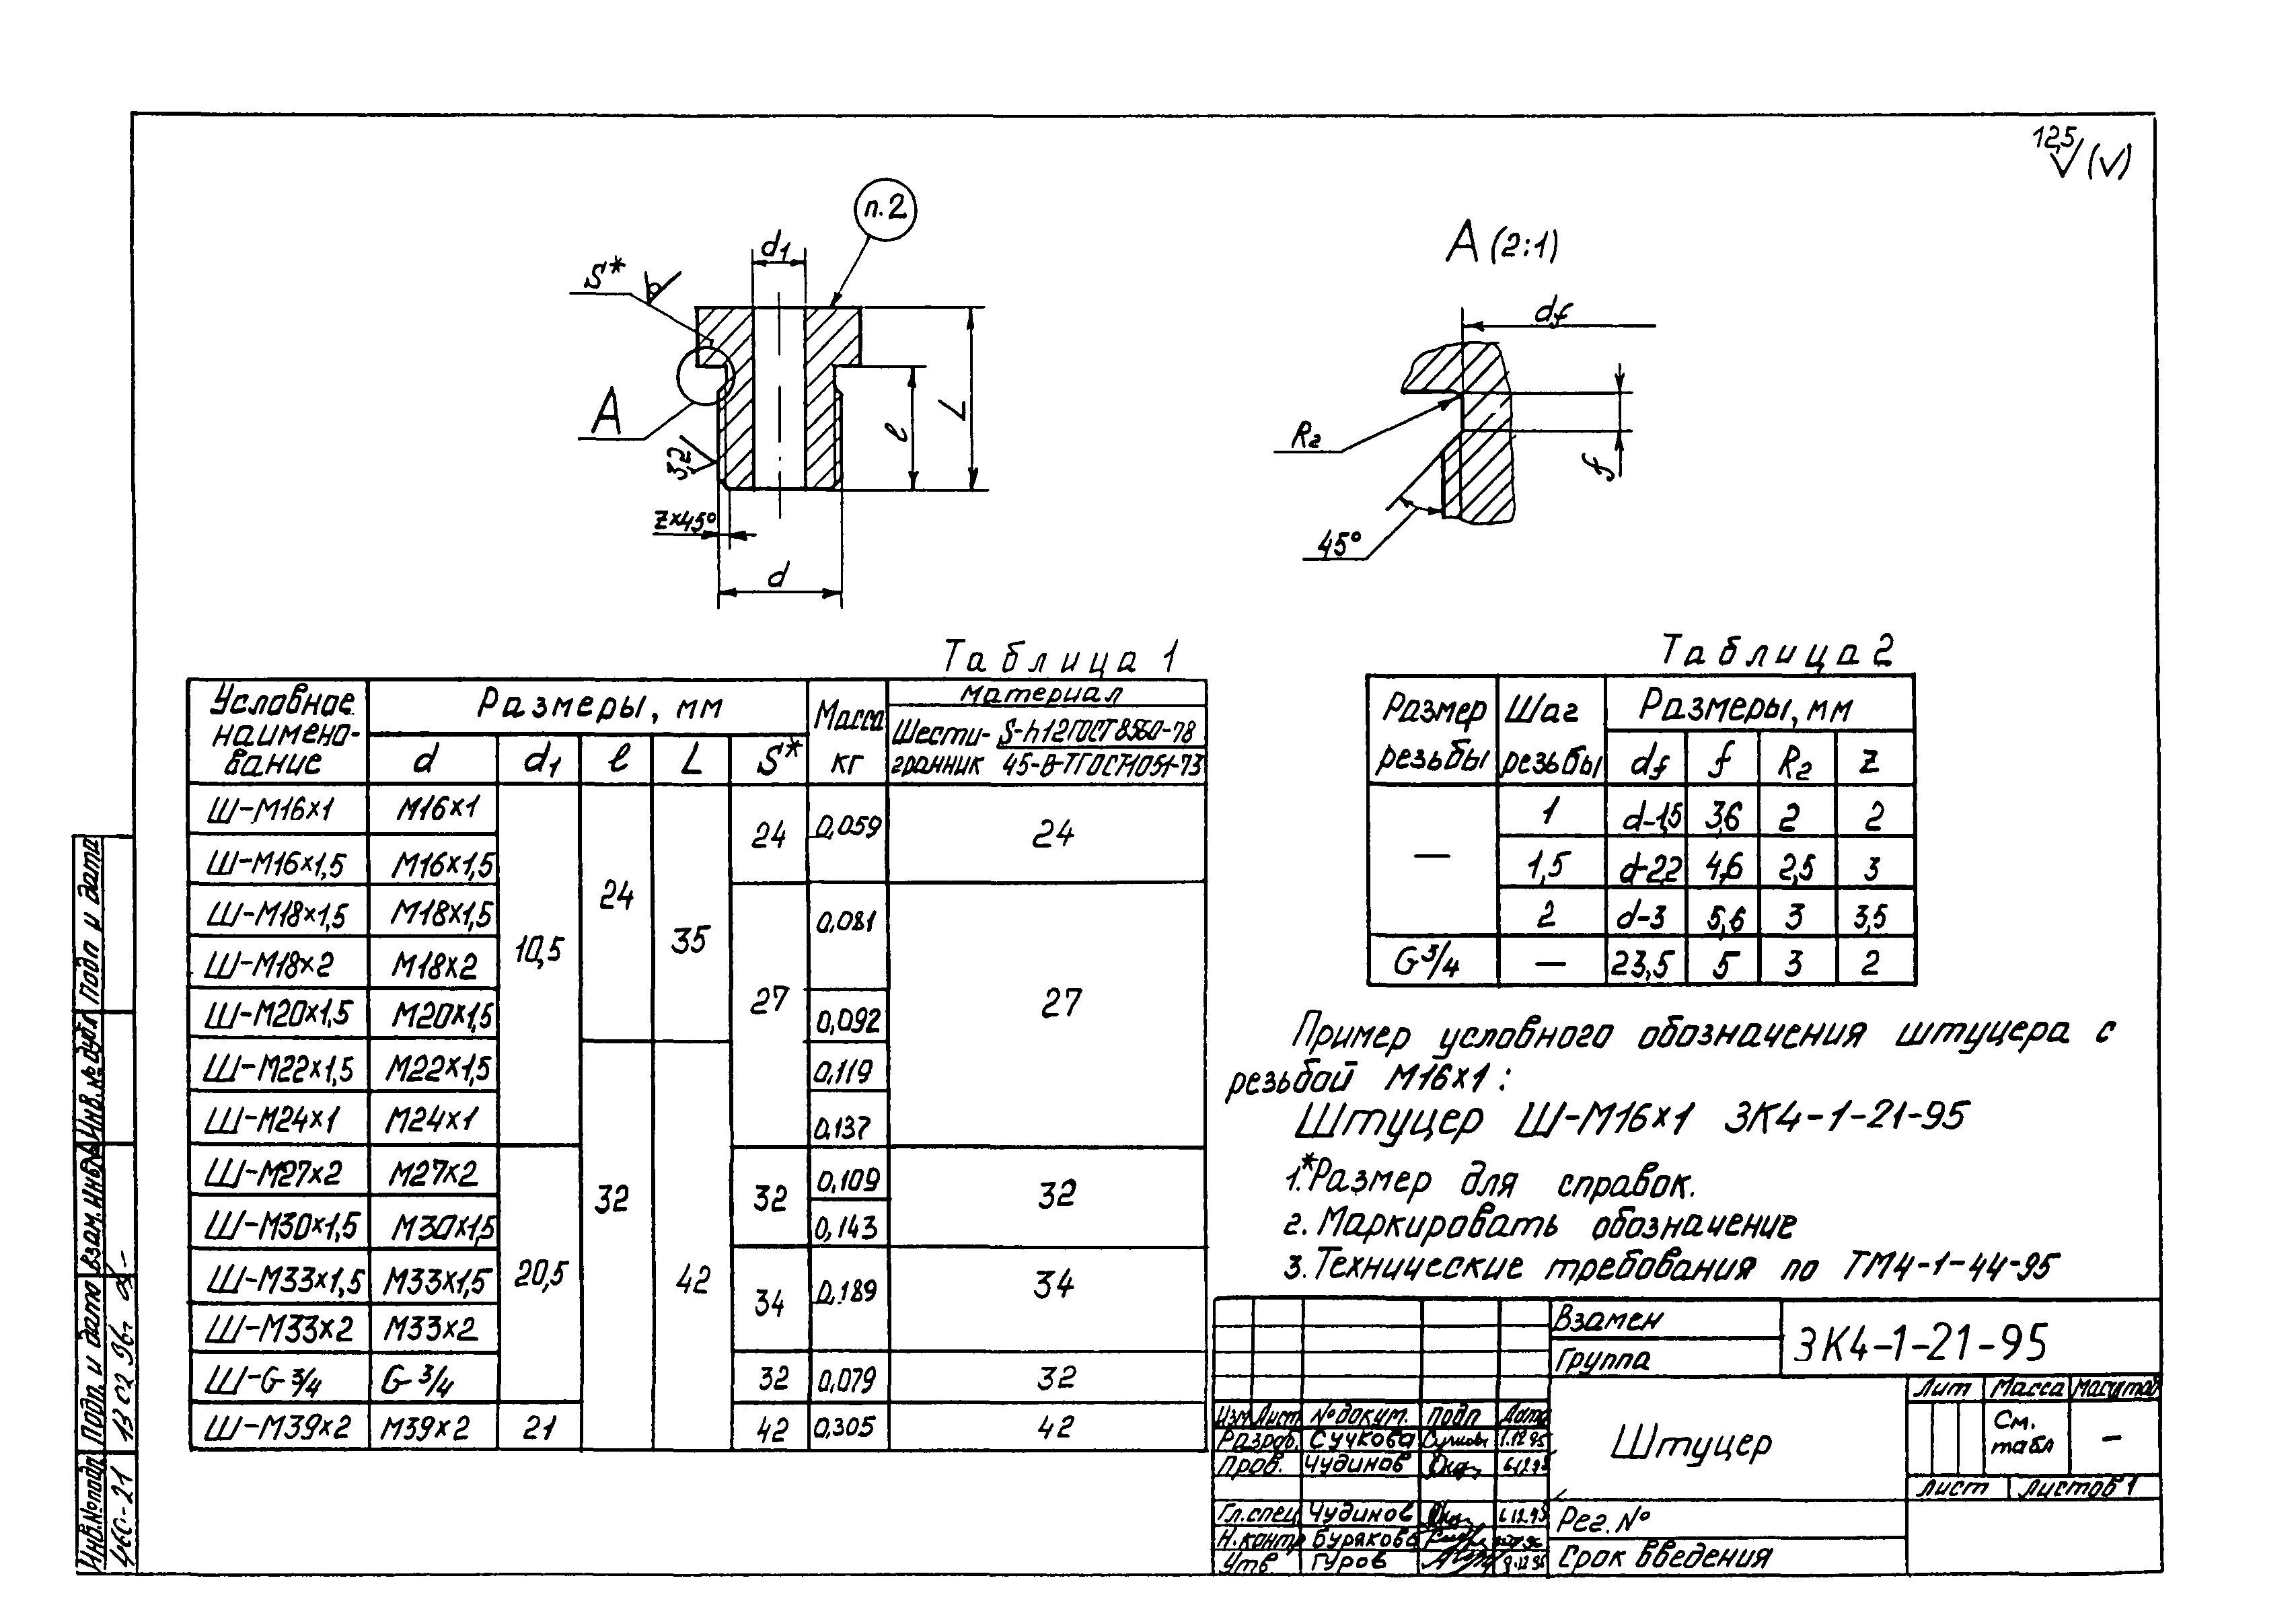 12,5 (√)
п.2
d1
S*
A (2:1)
df
A
l
L
R2
f
3,2
z×45°
45°
d
Таблица 1
Условное наимено-вание
Размеры, мм
Масса кг
Материал
Шести-гранник S-h12 ГОСТ 8560-78 / 45-В-Т ГОСТ 1051-73
d d1 l L S*
Ш-М16×1 М16×1 10,5 24 35 24 0,059 24
Ш-М16×1,5 М16×1,5
Ш-М18×1,5 М18×1,5 27 0,081 27
Ш-М18×2 М18×2
Ш-М20×1,5 М20×1,5 0,092
Ш-М22×1,5 М22×1,5 32 42 0,119
Ш-М24×1 М24×1 0,137
Ш-М27×2 М27×2 20,5 32 0,109 32
Ш-М30×1,5 М30×1,5 0,143
Ш-М33×1,5 М33×1,5 34 0,189 34
Ш-М33×2 М33×2
Ш-G 3/4 G 3/4 32 0,079 32
Ш-М39×2 М39×2 21 42 0,305 42
Таблица 2
Размер резьбы
Шаг резьбы
Размеры, мм
df f R2 z
— 1 d-1,5 3,6 2 2
1,5 d-2,2 4,6 2,5 3
2 d-3 5,6 3 3,5
G 3/4 — 23,5 5 3 2
Пример условного обозначения штуцера с
резьбой М16×1:
Штуцер Ш-М16×1 ЗК4-1-21-95
1.*Размер для справок.
2. Маркировать обозначение
3. Технические требования по ТМ4-1-44-95
Взамен
Группа
ЗК4-1-21-95
Штуцер
Лит Масса Масштаб
См. табл —
Лист Листов 1
Изм Лист № докум. Подп Дата
Разраб. Сучкова 1.12.95
Пров. Чудинов
Гл.спец Чудинов 6.12.95
Н.контр Бурякова
Утв. Гуров
Рег. №
Срок введения
Инв.№ подл. Подп. и дата Взам. Инв.№ Инв.№ дубл Подп и дата
13 02 96г